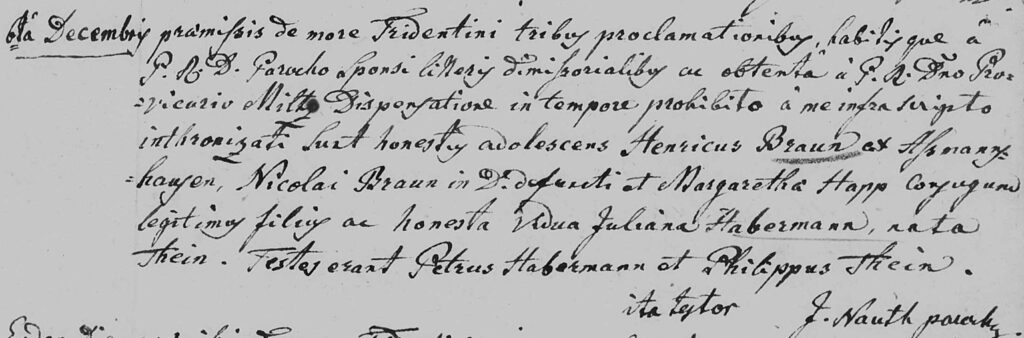 6ta Decembris præmissis de more Tridentini tribus proclamationibus, habitisque à
P. R. D. Parocho sponsi litteris dimissorialibus ac obtentâ à P. R. Dno Pro-
-vicario Dispensatione in tempore prohibito à me infra scripto
inthronizati sunt honestus adolescens Henricus Braun ex Asmanns-
-hausen, Nicolai Braun in D. defuncti et Margaretha Happ Conjugum
legitimus filius ac honesta Vidua Juliana Habermann, nata
Thein. Testes erant Petrus Habermann et Philippus Thein.
ita testor J. Nauth parochus